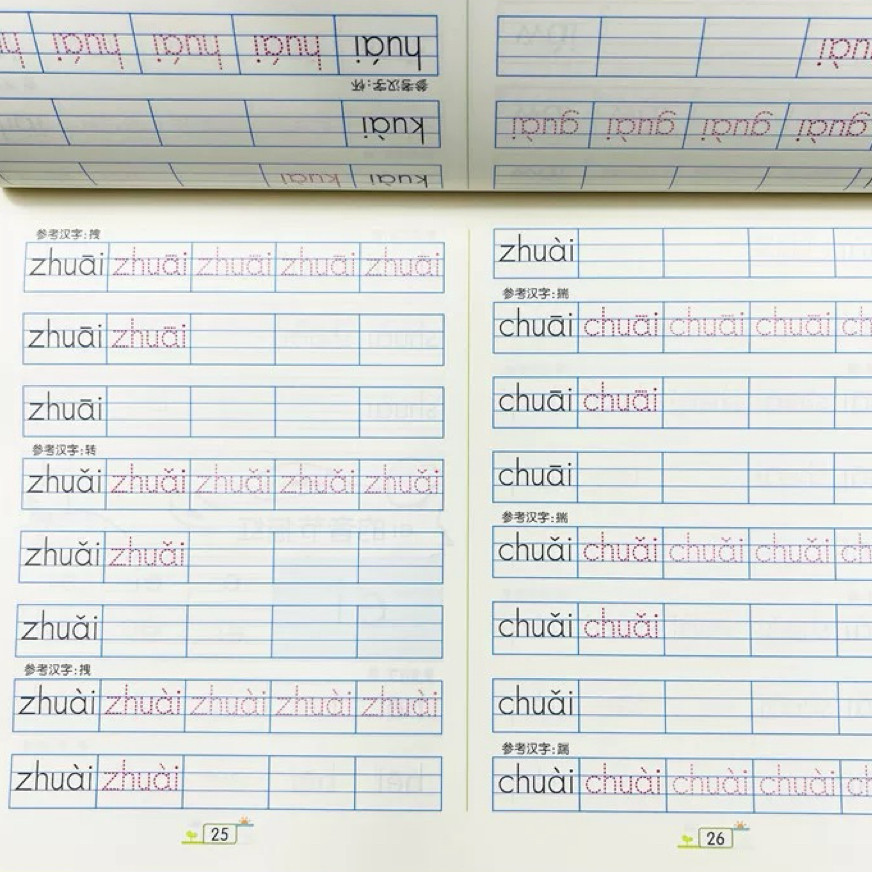 huái huái huái huái
参考汉字:怀
kuài
kuài kuài
guài guài guài guài
参考汉字:拽
zhuāi zhuāi zhuāi zhuāi zhuāi
zhuāi zhuāi
zhuāi
参考汉字:转
zhuǎi zhuǎi zhuǎi zhuǎi zhuǎi
zhuǎi zhuǎi
zhuǎi
参考汉字:拽
zhuài zhuài zhuài zhuài zhuài
zhuài zhuài
25
zhuài
参考汉字:揣
chuāi chuāi chuāi chuāi ch
chuāi chuāi
chuāi
参考汉字:揣
chuǎi chuǎi chuǎi chuǎi ch
chuǎi chuǎi
chuǎi
参考汉字:踹
chuài chuài chuài chuài ch
26